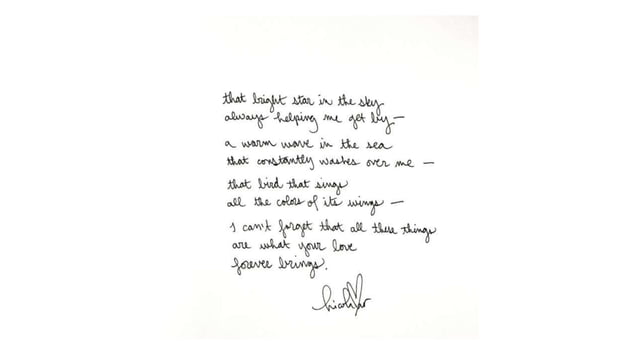 that bright star in the sky
always helping me get by—
a warm wave in the sea
that constantly washes over me —
that bird that sings
all the colors of its wings —
I can't forget that all these things
are what your love
forever brings.